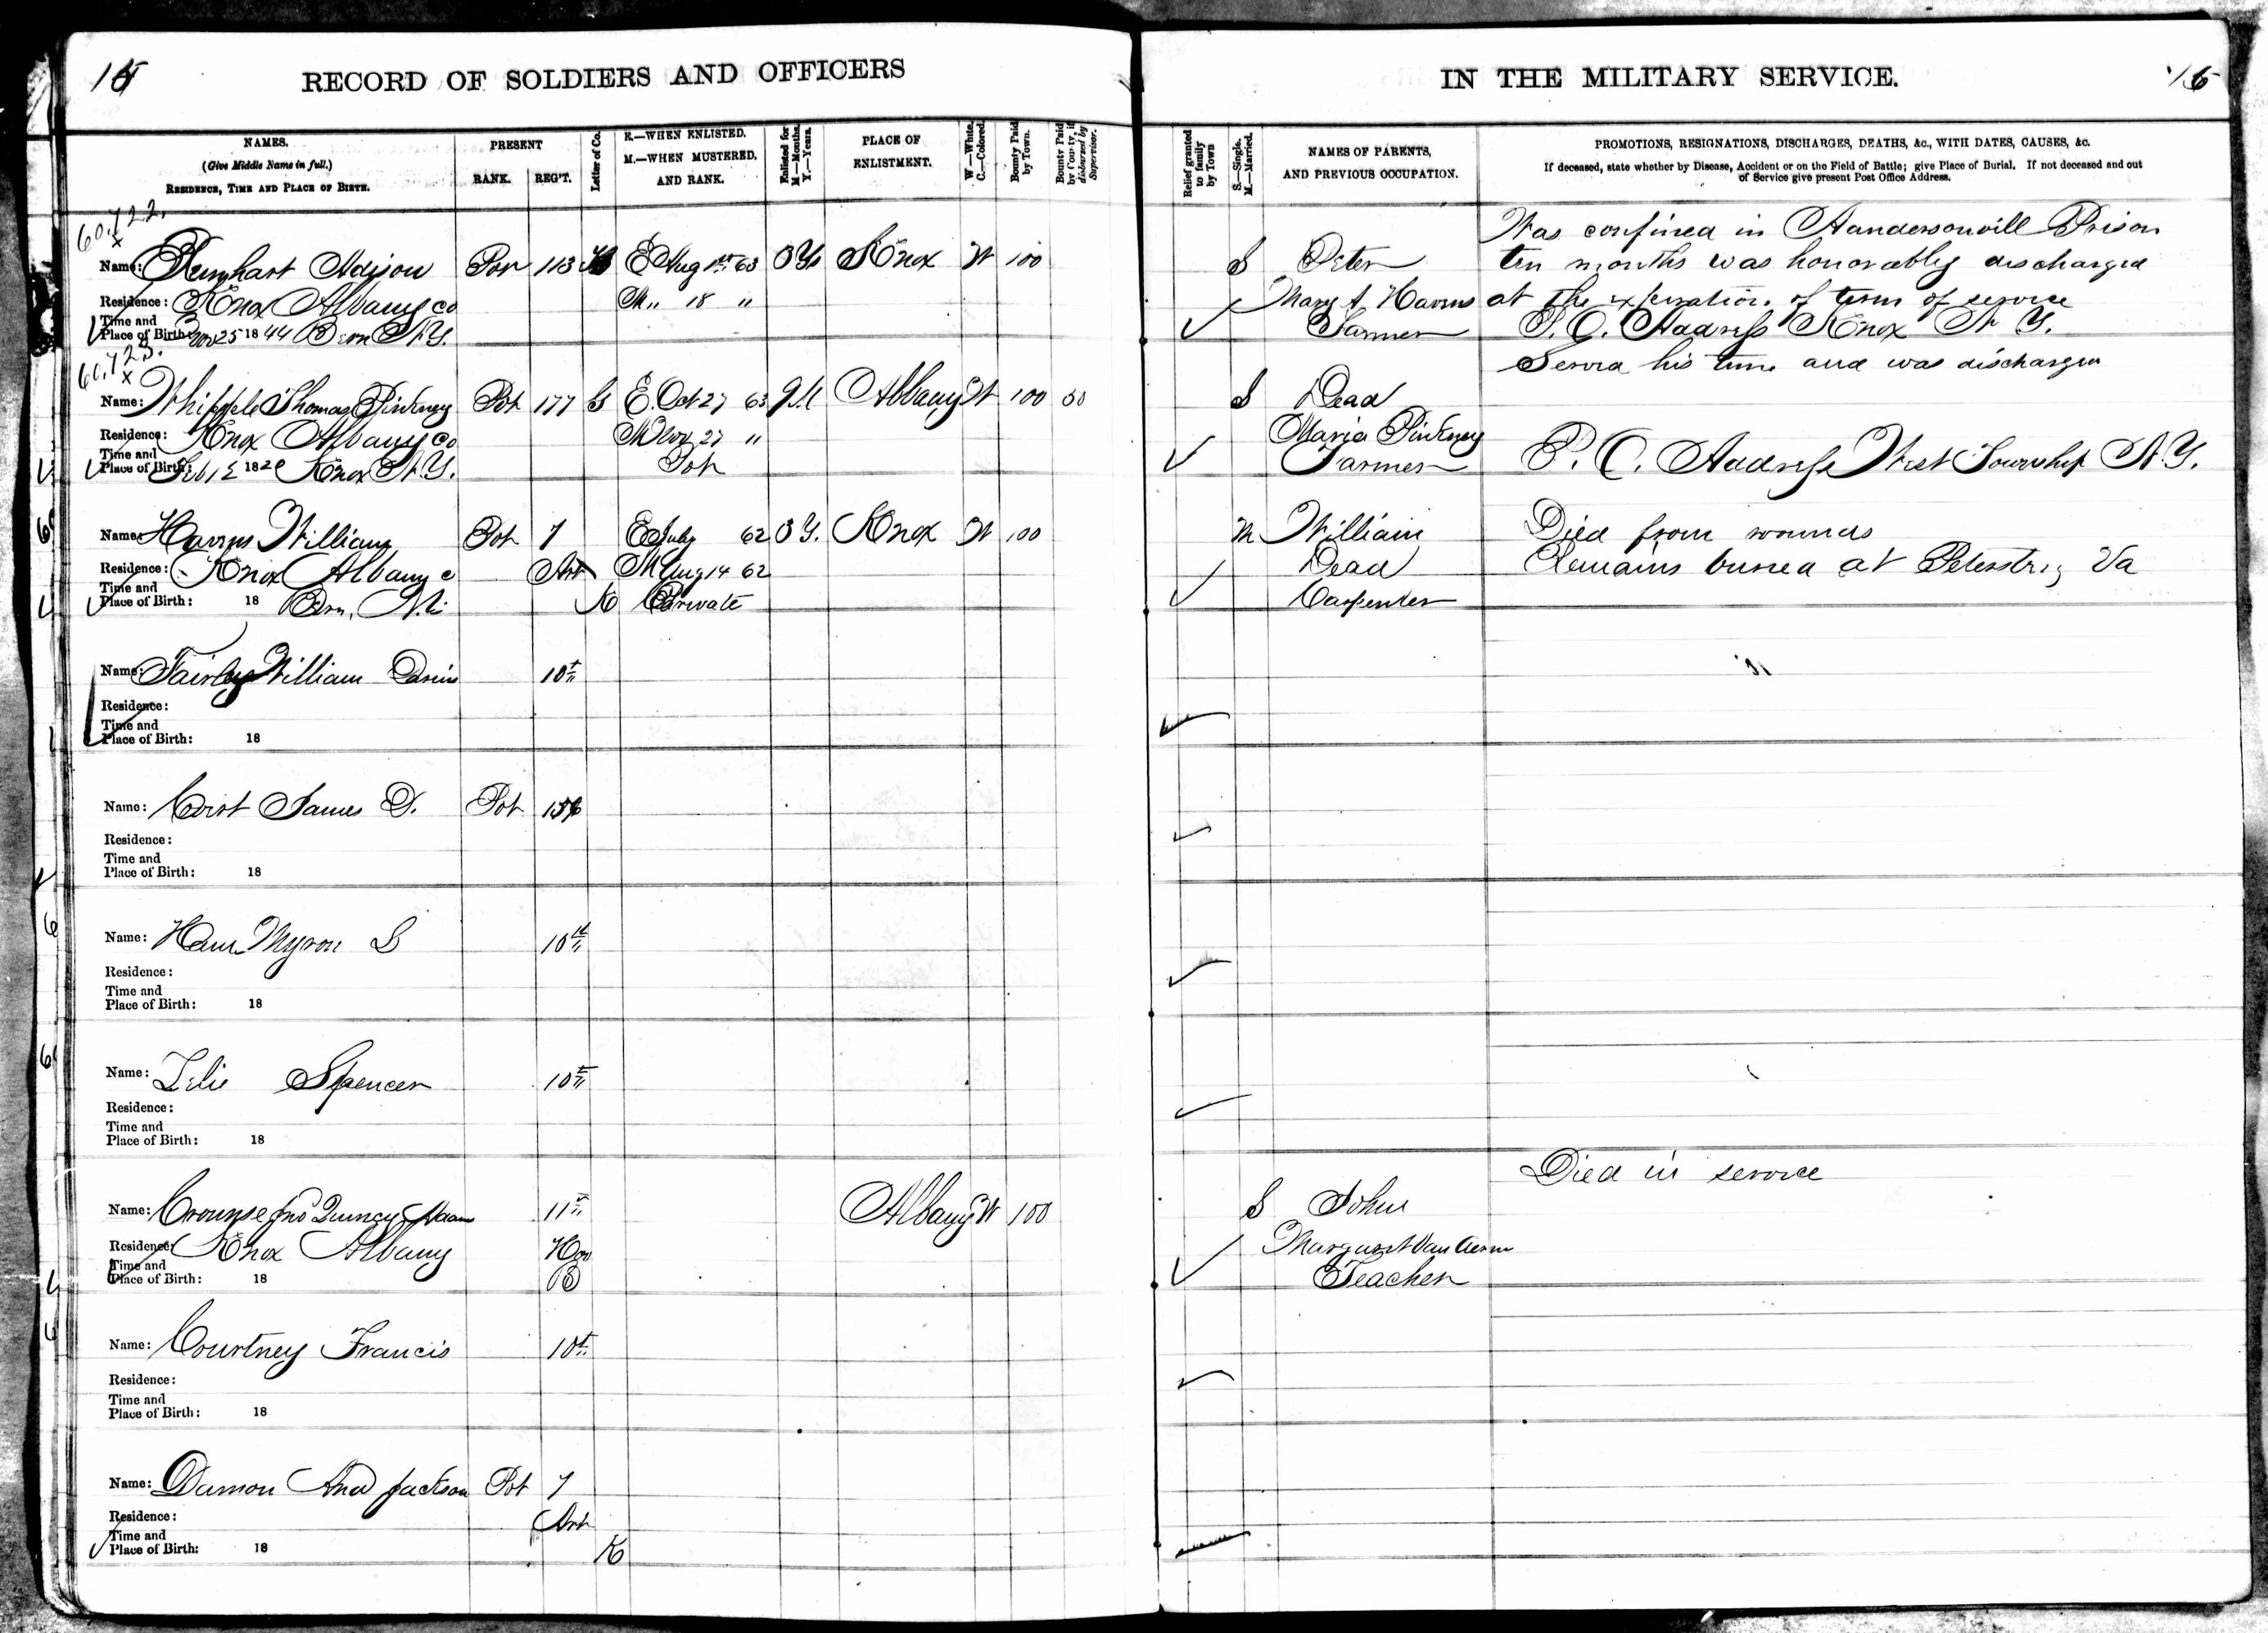 15 RECORD OF SOLDIERS AND OFFICERS
NAMES.
(Give Middle Name in full.)
RESIDENCE, TIME AND PLACE OF BIRTH.
PRESENT
RANK. REG'T.
Letter of Co.
E.—WHEN ENLISTED.
M.—WHEN MUSTERED.
AND RANK.
Enlisted for
M.—Months.
Y.—Years.
PLACE OF
ENLISTMENT.
W.—White.
C.—Colored.
Bounty Paid
by Town.
Bounty Paid
by County, if
disbursed by
Supervisor.
60.722.
x
Name: Adison 113 E Aug 63 3 Ys Knox W 100
Residence: Knox Albany Co M " 18 "
Time and
Place of Birth: Nov 25 1844 Bern N.Y.
60.723.
x
Name: Whipple Thomas Pinkney Pvt 177 G E. Oct 27 63 9 M Albany W 100 50
Residence: Knox Albany Co M Nov 27 "
Time and
Place of Birth: Feb 18 Knox N.Y. Pvt
Name: Havens William Pvt 7 E July 62 3 Y. Knox W 100
Residence: Knox Albany c Art M Aug 14 62
Time and
Place of Birth: 18 Bern, K Private
Name: Fairlee William 10th
Residence:
Time and
Place of Birth: 18
Name: James D. Pvt
Residence:
Time and
Place of Birth: 18
Name: Myron S 10th
Residence:
Time and
Place of Birth: 18
Name: Spencer 10th
Residence:
Time and
Place of Birth: 18
Name: Crounse Jno Quincy Adams 11th Albany W 100
Residence: Knox Albany
Time and
Place of Birth: 18 B
Name: Courtney Francis 10th
Residence:
Time and
Place of Birth: 18
Name: Damon And Jackson Pvt 7
Residence: Art
Time and
Place of Birth: 18 K
IN THE MILITARY SERVICE. 15
Relief granted
to family
by Town
S.—Single.
M.—Married.
NAMES OF PARENTS,
AND PREVIOUS OCCUPATION.
PROMOTIONS, RESIGNATIONS, DISCHARGES, DEATHS, &c., WITH DATES, CAUSES, &c.
If deceased, state whether by Disease, Accident or on the Field of Battle; give Place of Burial. If not deceased and out
of Service give present Post Office Address.
Was confined in Aandersonvill Prison
S Peter ten months was honorably discharged
Mary A. Havens at the expiration of term of service
Farmer P. O. Address Knox N Y.
Served his time and was discharged
S Dead
Maria Pinkney
Farmer P. O. Address West Township N.Y.
M William Died from wounds
Dead Remains buried at Va
Carpenter
Died in service
S John
Margaret Van Aernu
Teacher